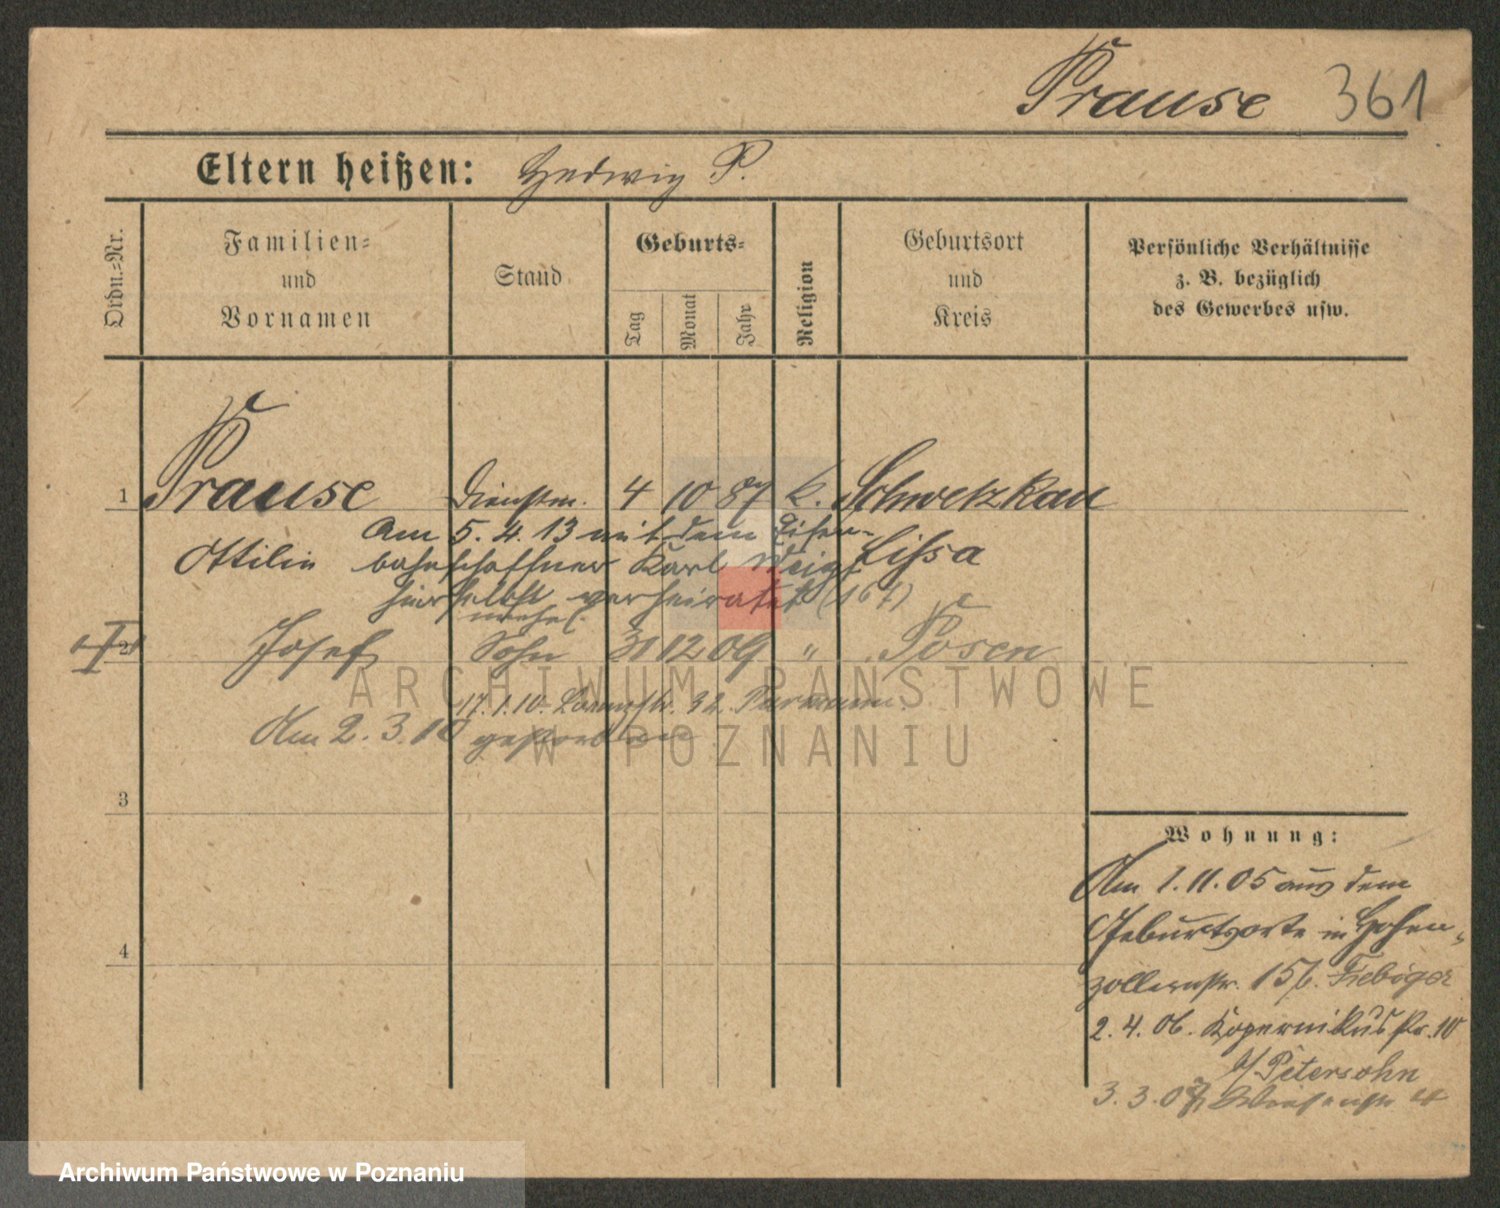 Prause 361
Eltern heißen: Hedwig P.
Ordn.-Nr.
Familien-
und
Vornamen
Stand
Geburts-
Tag
Monat
Jahr
Religion
Geburtsort
und
Kreis
Persönliche Verhältnisse
z. B. bezüglich
des Gewerbes usw.
1 Prause Dienstm. 4 10 87 k. Schwetzkau
Am 5. 4. 13 mit dem Eisen-
Ottilie bahnschaffner Karl Weigt Lissa
hierselbst verheiratet (167)
unehel.
2 Josef Sohn 31 12 09 " Posen
17. 1. 10. 32.
Am 2. 3. 10 gestorben
3
4
Wohnung:
Am 1. 11. 05 aus dem
Geburtsorte in Hohen-
zollernstr. 15 b. Fiebiger
2. 4. 06. Kopernikusstr. 10
b/ Petersohn
3. 3. 08
ARCHIWUM PAŃSTWOWE
W POZNANIU
Archiwum Państwowe w Poznaniu